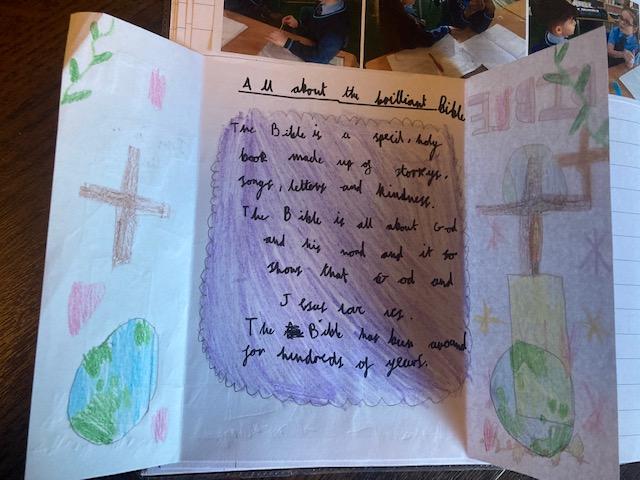 All about the brilliant Bible
The Bible is a specil, holy
book made up of storkys,
songs, letters and kindness.
The Bible is all about God
and his and it so
shows that God and
Jesus love us.
The Bible has been around
for hundreds of years.
BIBLE